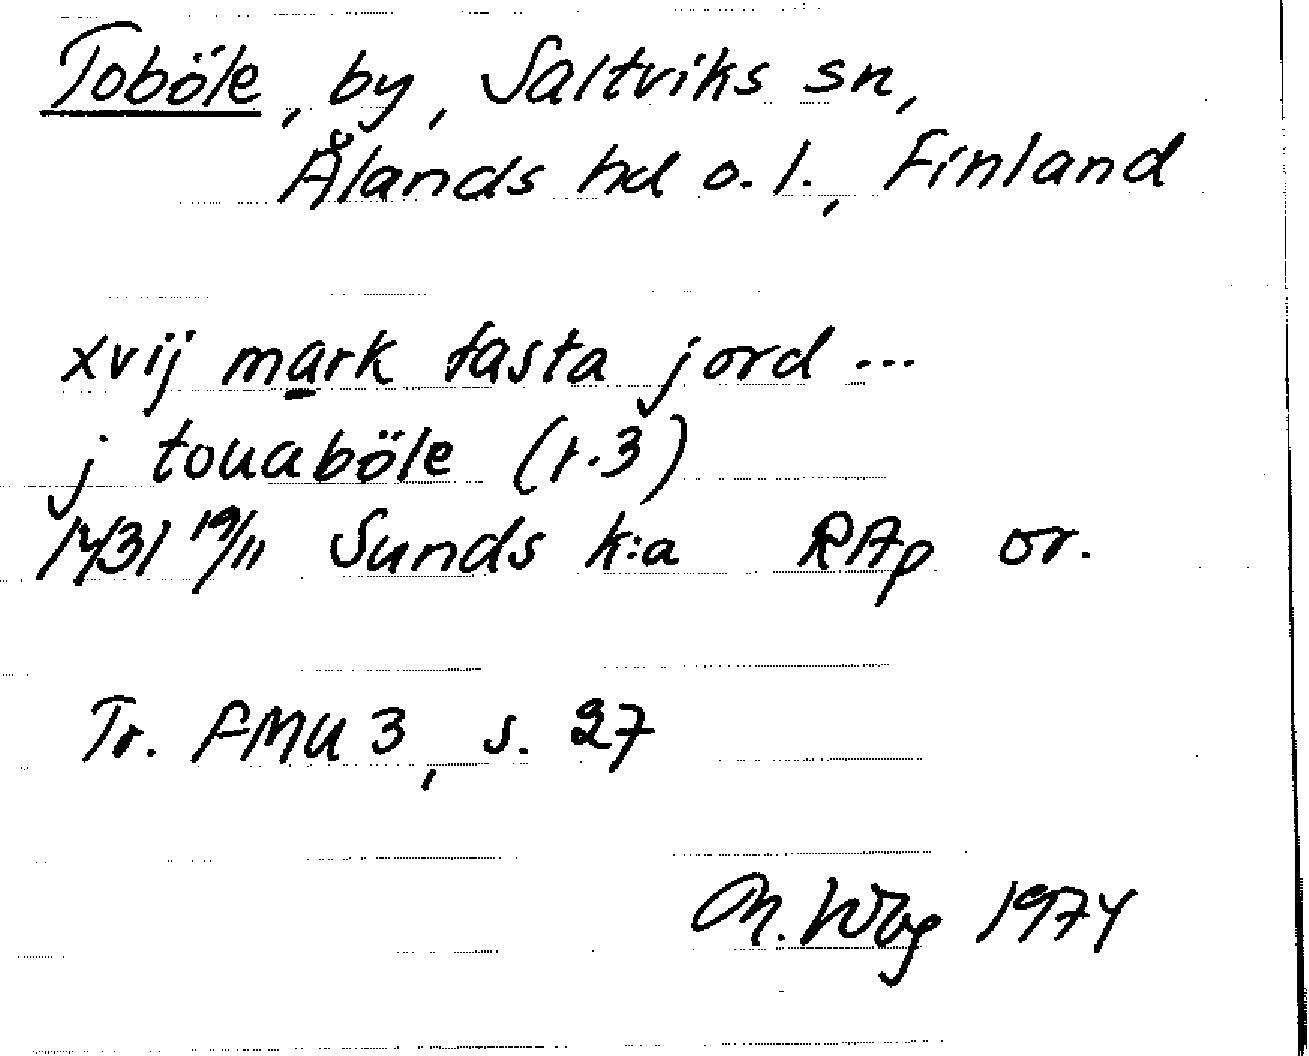 Toböle, by, Saltviks sn,
Ålands hd o. l., Finland
xvij mark fasta jord ...
j touaböle (r. 3)
1431 19/11 Sunds k:a RAp or.
Tr. FMU 3, s. 27
M. 1974